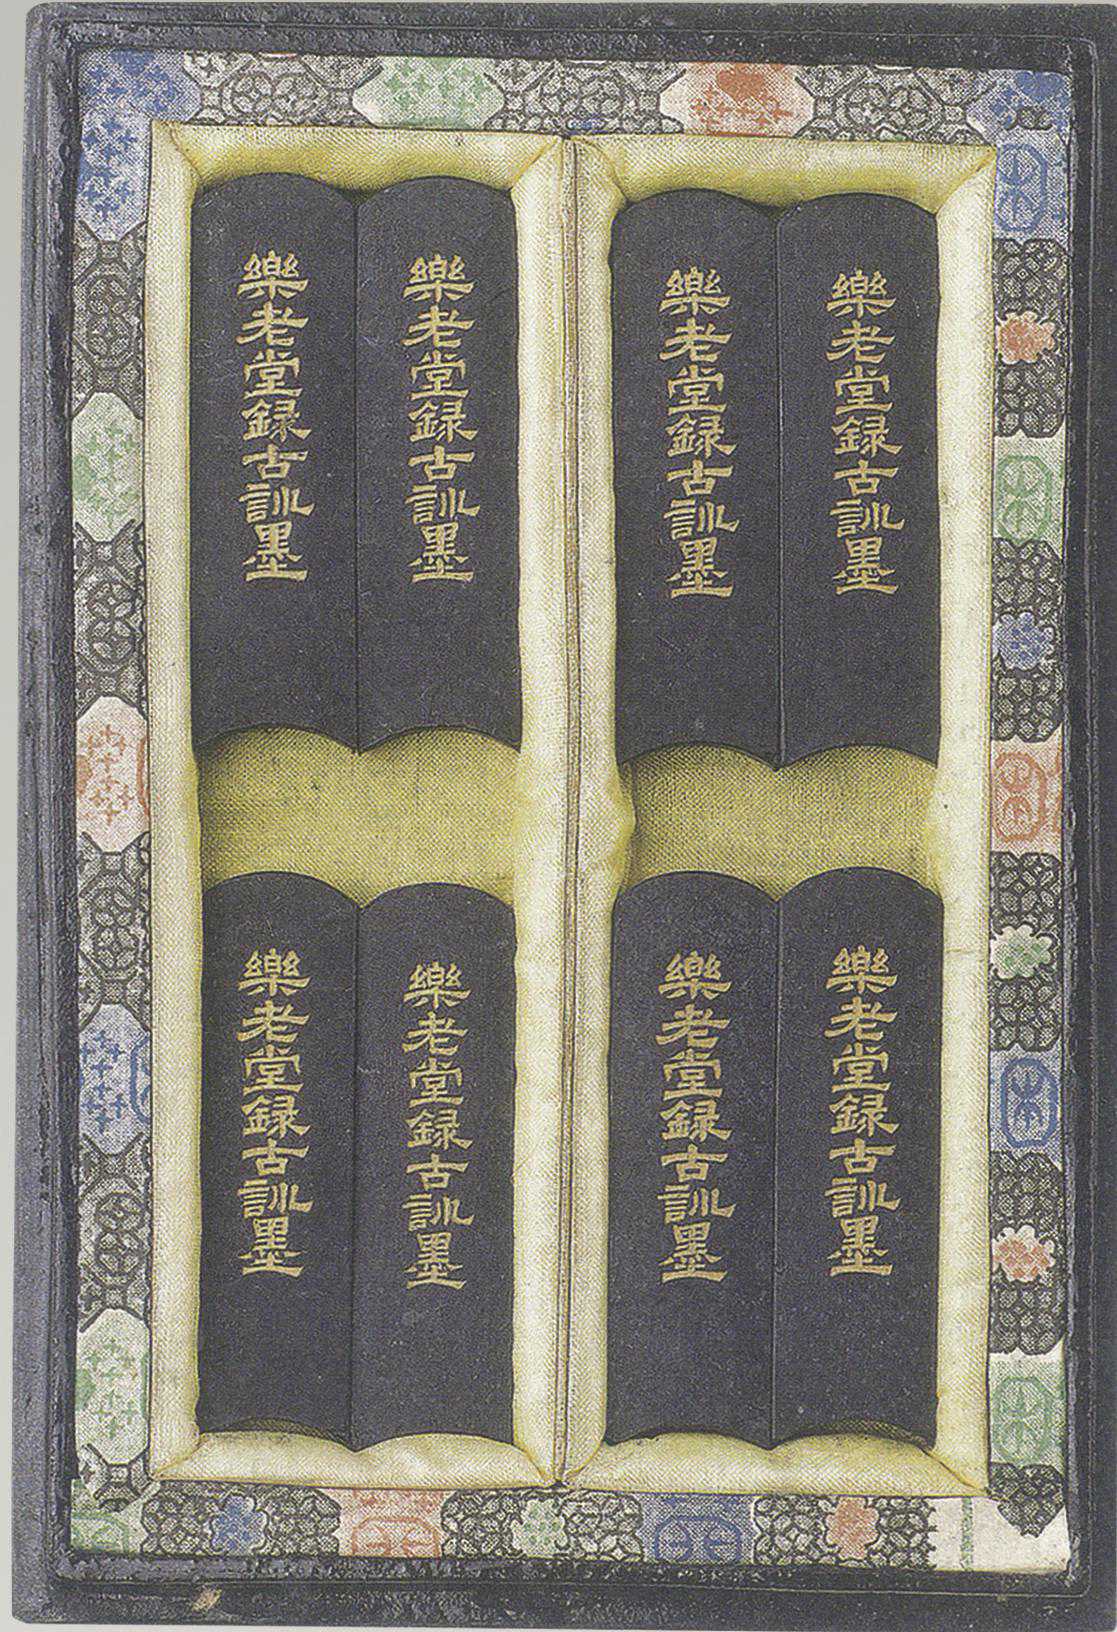 樂老堂録古訓墨
樂老堂録古訓墨
樂老堂録古訓墨
樂老堂録古訓墨
樂老堂録古訓墨
樂老堂録古訓墨
樂老堂録古訓墨
樂老堂録古訓墨